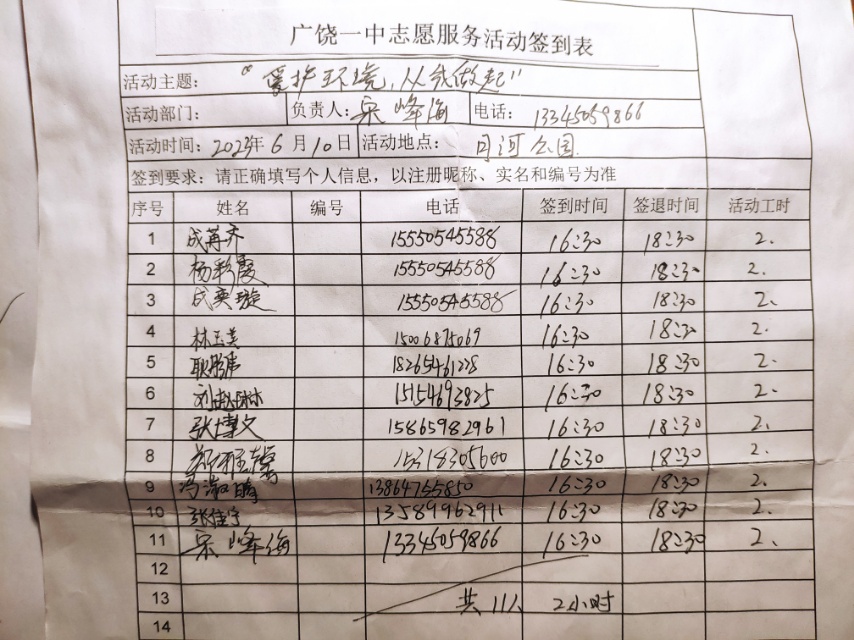 广饶一中志愿服务活动签到表
活动主题： “爱护环境，从我做起”
活动部门： 负责人：宋峰海 电话： 13345059866
活动时间：2023年6月10日 活动地点： 月河公园
签到要求：请正确填写个人信息，以注册昵称、实名和编号为准
序号 姓名 编号 电话 签到时间 签退时间 活动工时
1 成苒齐 15550545588 16:30 18:30 2.
2 杨彩霞 15550545588 16:30 18:30 2.
3 成奕璇 15550545588 16:30 18:30 2.
4 林玉美 15006875069 16:30 18:30 2.
5 耿彤 18265461228 16:30 18:30 2.
6 刘赵琳 15154693825 16:30 18:30 2.
7 张博文 15865982961 16:30 18:30 2.
8 15318305600 16:30 18:30 2.
9 冯淑 13864755850 16:30 18:30 2.
10 张佳宁 13589962911 16:30 18:30 2.
11 宋峰海 13345059866 16:30 18:30 2.
12
13 共11人 2小时
14